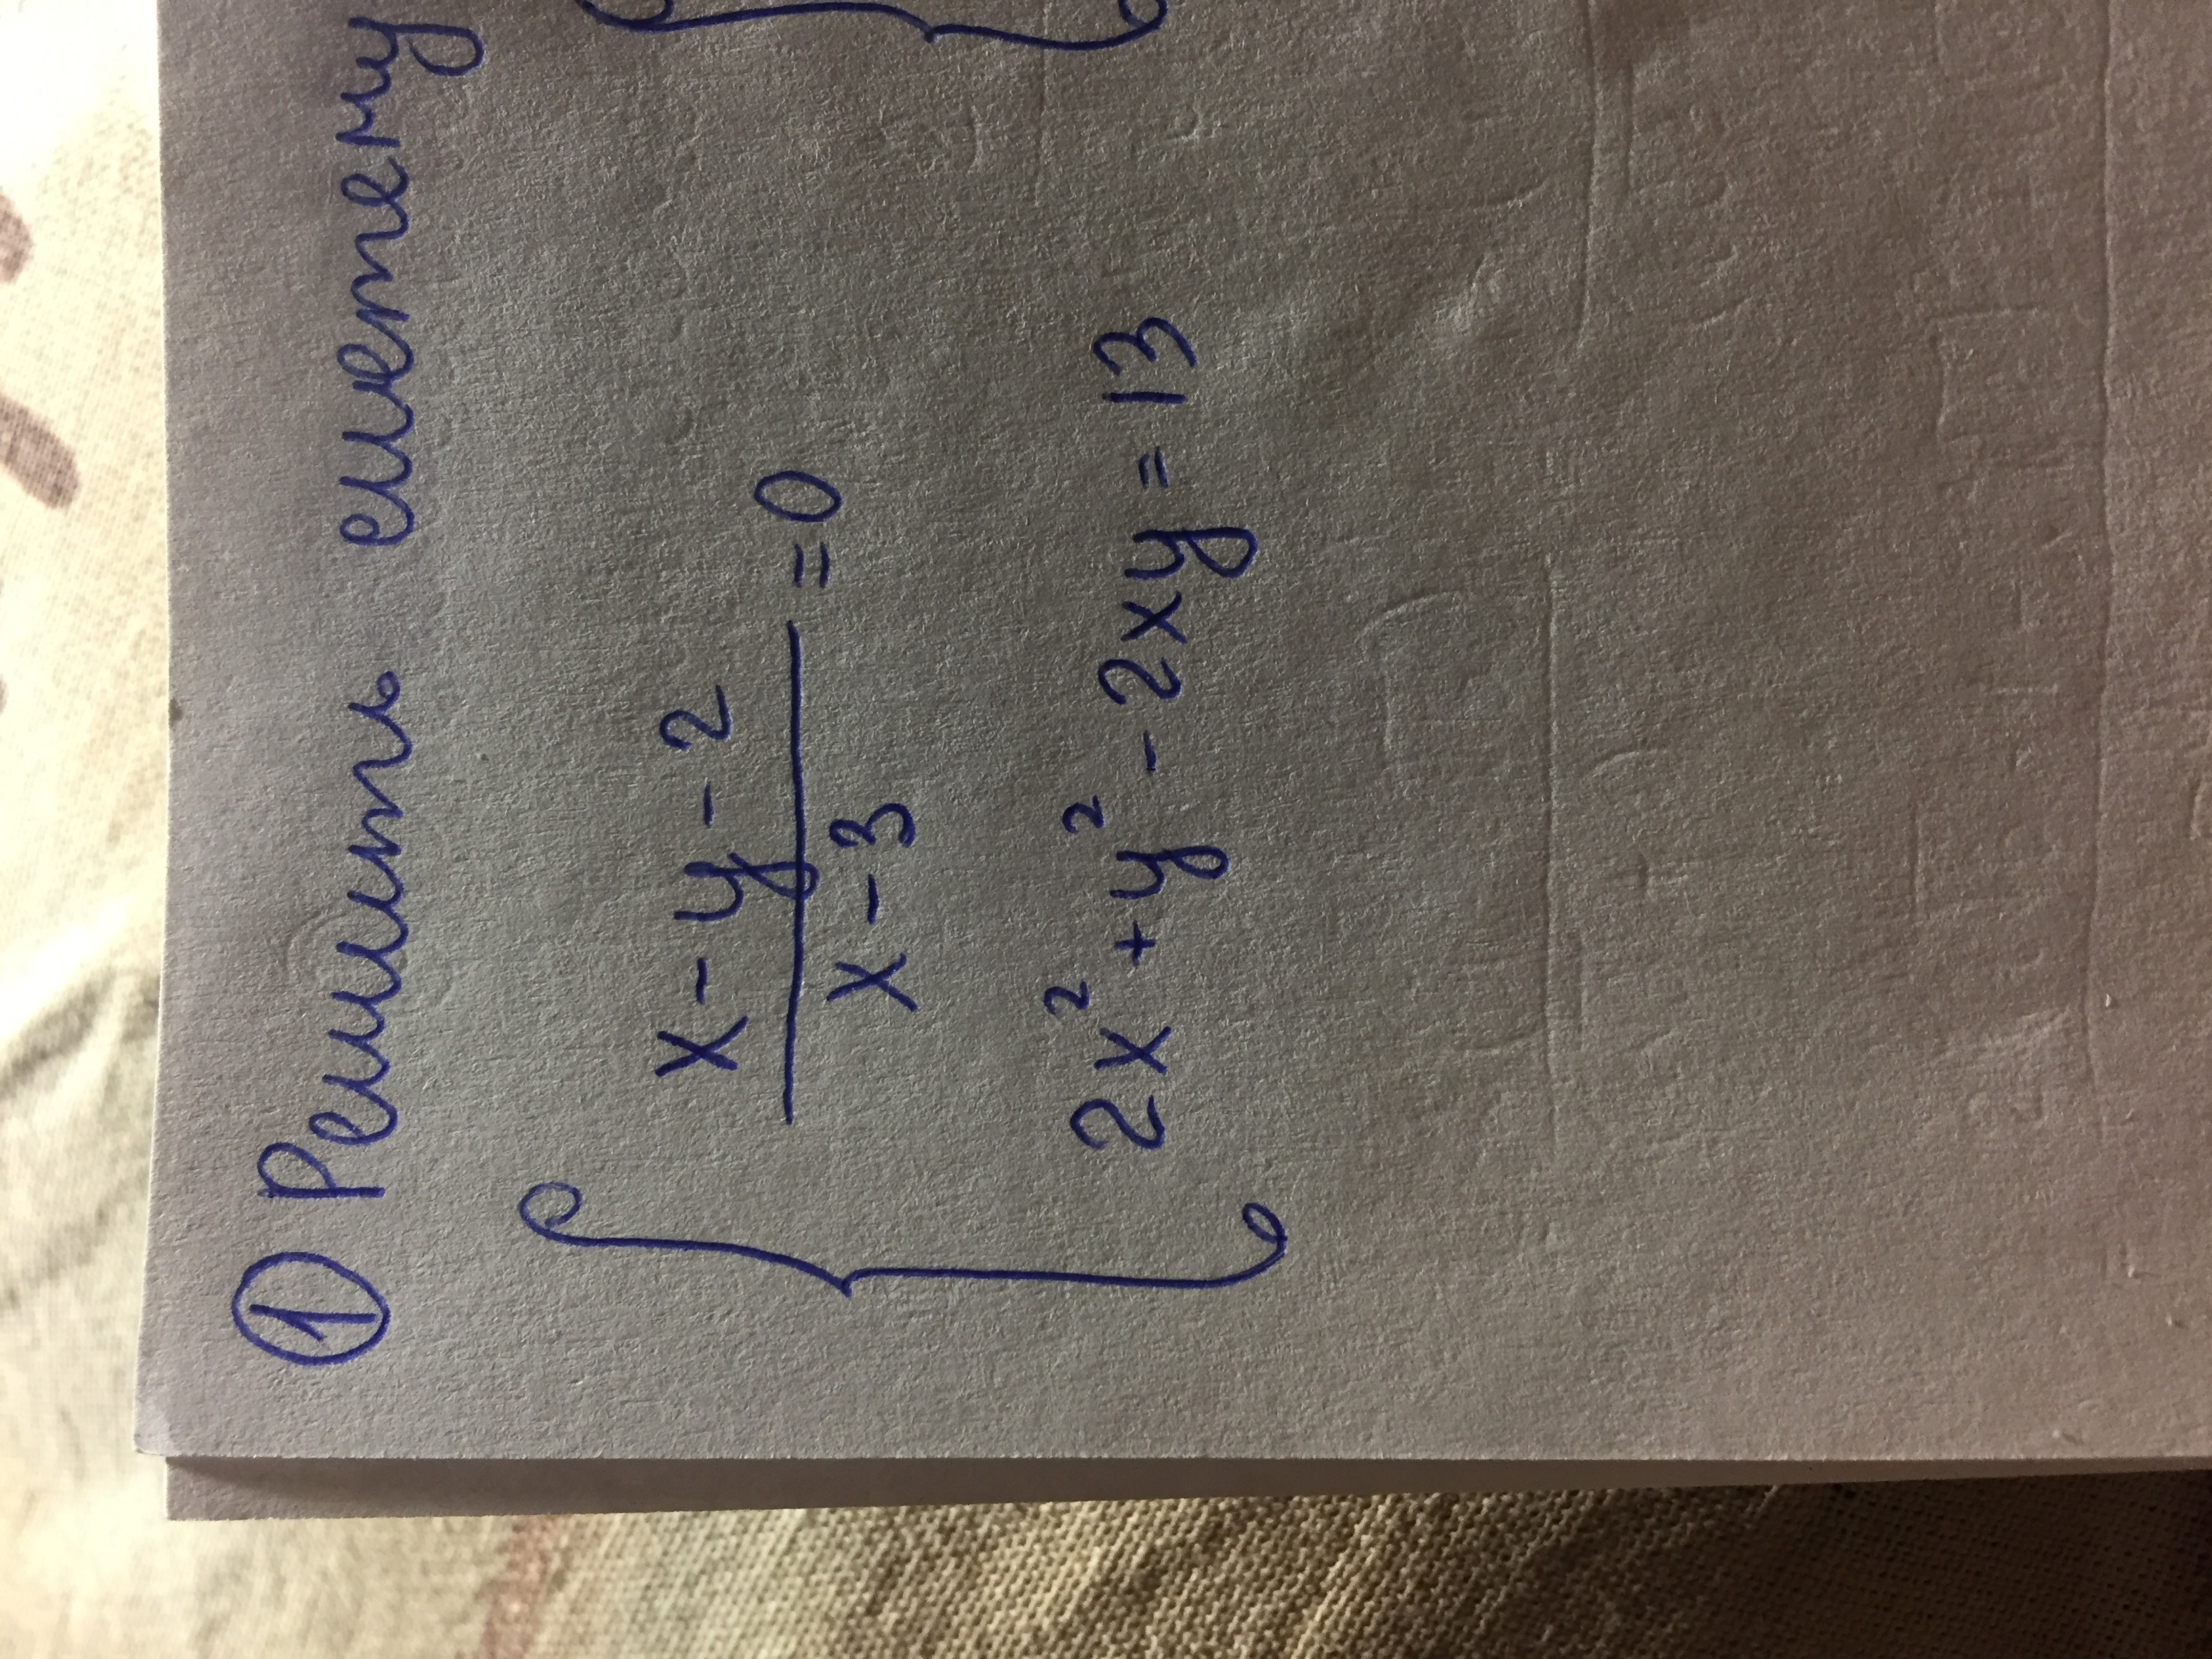 ① Решить систему
x - y - 2
/ x - 3 = 0
2x² + y² - 2xy = 13